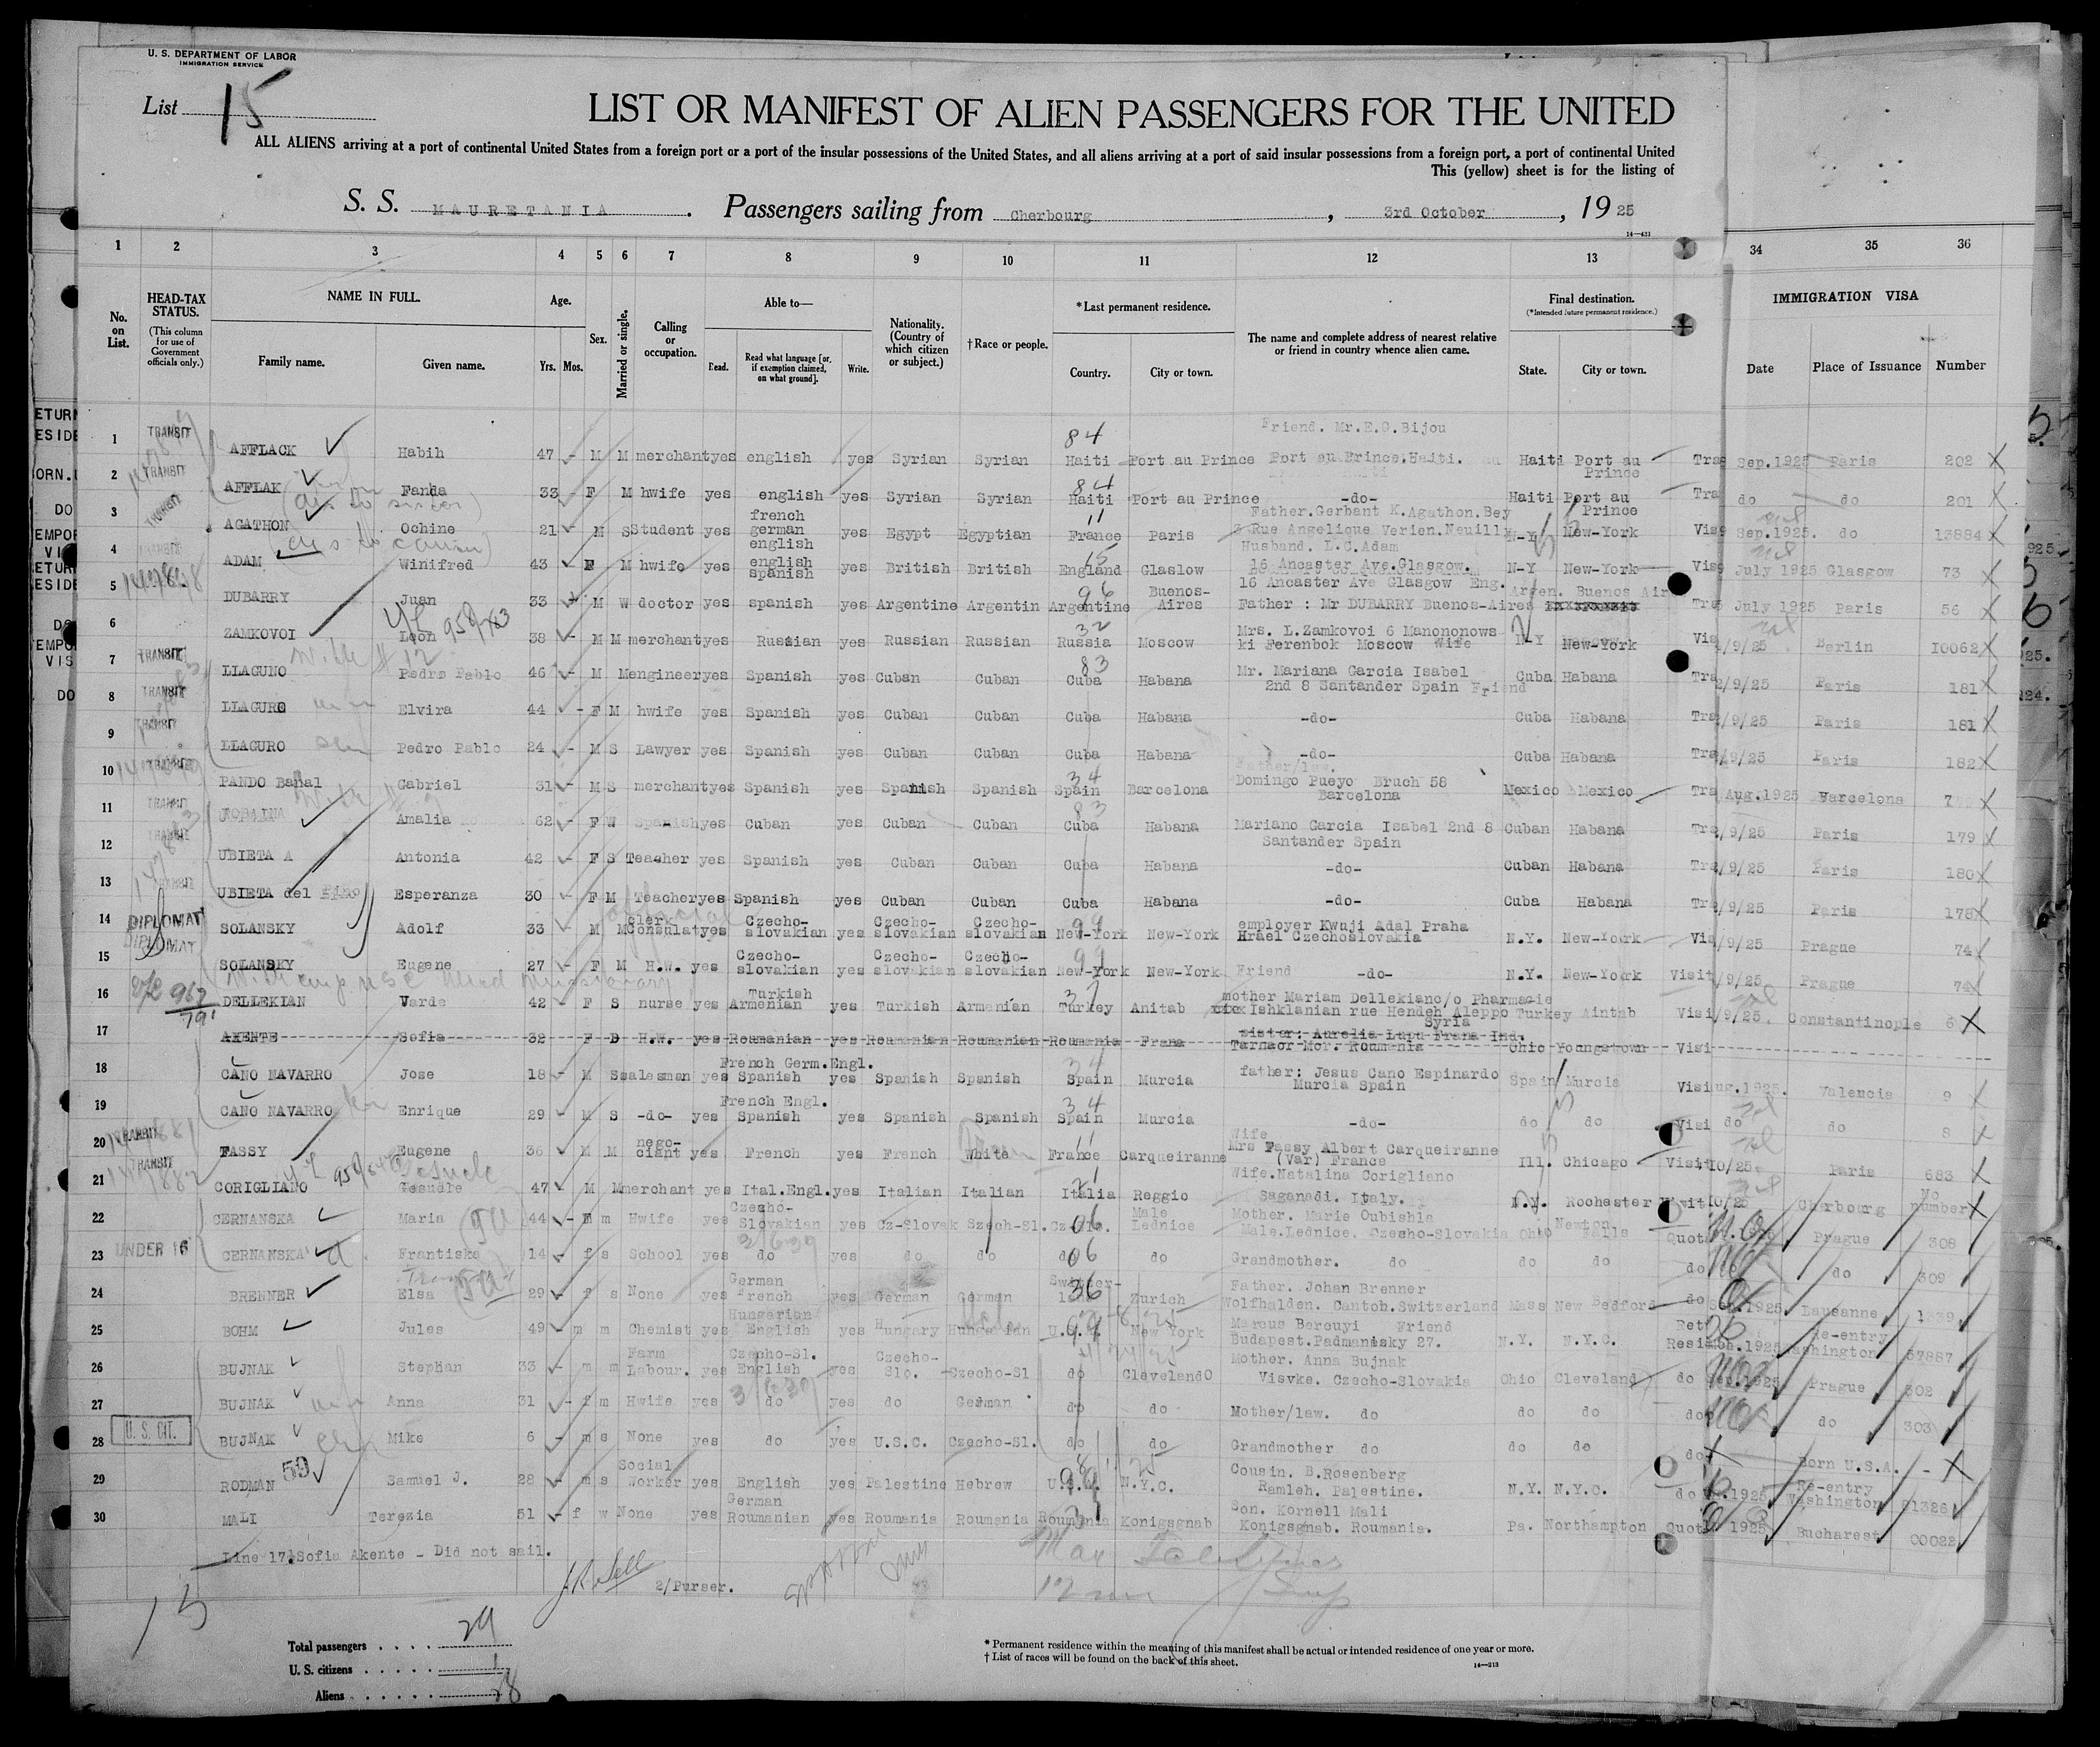 U. S. DEPARTMENT OF LABOR
IMMIGRATION SERVICE
List 15
LIST OR MANIFEST OF ALIEN PASSENGERS FOR THE UNITED
ALL ALIENS arriving at a port of continental United States from a foreign port or a port of the insular possessions of the United States, and all aliens arriving at a port of said insular possessions from a foreign port, a port of continental United
This (yellow) sheet is for the listing of
S. S. MAURETANIA. Passengers sailing from Cherbourg, 3rd October, 1925
14—431
1 2 3 4 5 6 7 8 9 10 11 12 13 34 35 36
No. on List.
HEAD-TAX STATUS. (This column for use of Government officials only.)
NAME IN FULL. Family name. Given name.
Age. Yrs. Mos.
Sex.
Married or single.
Calling or occupation.
Able to— Read. Read what language [or, if exemption claimed, on what ground]. Write.
Nationality. (Country of which citizen or subject.)
†Race or people.
*Last permanent residence. Country. City or town.
The name and complete address of nearest relative or friend in country whence alien came.
Final destination. (*Intended future permanent residence.) State. City or town.
IMMIGRATION VISA Date Place of Issuance Number
1 TRANSIT AFFLACK Habih 47 - M M merchant yes english yes Syrian Syrian 84 Haiti Port au Prince Friend. Mr.E.G.Bijou Port au Prince.Haiti. Haiti Port au Prince Tra Sep.1925 Paris 202
2 TRANSIT AFFLAK Fanda 33 - F M hwife yes english yes Syrian Syrian 84 Haiti Port au Prince -do- Haiti Port au Prince Tra do do 201
3 TRANSIT AGATHON Ochine 21 - M S Student yes french german english yes Egypt Egyptian 11 France Paris Father.Gerbant K.Agathon.Bey 3 Rue Angelique Verien.Neuilly N-Y New-York Vis Sep.1925. do 13884
4 TRANSIT ADAM Winifred 43 F M hwife yes english spanish yes British British 15 England Glaslow Husband. L.C.Adam 16 Ancaster Ave.Glasgow. N-Y New-York Vis July 1925 Glasgow 73
5 DUBARRY Juan 33 M W doctor yes spanish yes Argentine Argentin 96 Argentine Buenos-Aires 16 Ancaster Ave Glasgow Eng. Father : Mr DUBARRY Buenos-Aires Argen. Buenos Air Tra July 1925 Paris 56
6 ZAMKOVOI Leon 38 - M M merchant yes Russian yes Russian Russian 32 Russia Moscow Mrs. L.Zamkovoi 6 Manononowski Ferenbok Moscow Wife N-Y New-York Vis /9/25 Berlin 10062
7 TRANSIT LLAGUNO Pedro Pablo 46 - M M engineer yes Spanish yes Cuban Cuban 83 Cuba Habana Mr. Mariana Garcia Isabel 2nd 8 Santander Spain Friend Cuba Habana Tra 2/9/25 Paris 181
8 TRANSIT LLAGURO Elvira 44 - F M hwife yes Spanish yes Cuban Cuban Cuba Habana -do- Cuba Habana Tra /9/25 Paris 181
9 TRANSIT LLAGURO Pedro Pablo 24 - M S Lawyer yes Spanish yes Cuban Cuban Cuba Habana -do- Cuba Habana Tra /9/25 Paris 182
10 TRANSIT PANDO Banal Gabriel 31 - M S merchant yes Spanish yes Spanish Spanish 34 Spain Barcelona Father/law. Domingo Pueyo Bruch 58 Barcelona Mexico Mexico Tra Aug.1925 Barcelona
11 TRANSIT Amalia 62 - F W Spanish yes Cuban yes Cuban Cuban 83 Cuba Habana Mariano Garcia Isabel 2nd 8 Santander Spain Cuban Habana Tra /9/25 Paris 179
12 TRANSIT UBIETA A Antonia 42 - F S Teacher yes Spanish yes Cuban Cuban Cuba Habana -do- Cuban Habana Tra /9/25 Paris 180
13 TRANSIT UBIETA del Pino Esperanza 30 - F M Teacher yes Spanish yes Cuban Cuban Cuba Habana -do- Cuba Habana Tra /9/25 Paris 178
14 DIPLOMAT SOLANSKY Adolf 33 - M M Clerk Consulat yes Czecho-slovakian yes Czecho-slovakian Czecho-slovakian 99 New-York New-York employer Kwuji Adal Praha Hrael Czechoslovakia N.Y. New-York Vis /9/25 Prague 74
15 DIPLOMAT SOLANSKY Eugene 27 - F M H.W. yes Czecho-slovakian yes Czecho-slovakian Czecho-slovakian 99 New-York New-York Friend -do- N.Y. New-York Visit /9/25 Prague 74
16 DELLEKIAN Varde 42 - F S nurse yes Turkish Armenian yes Turkish Armenian 37 Turkey Anitab mother Mariam Dellekianc/o Pharmacie Ishklanian rue Hendeh Aleppo Syria Turkey Aintab Visi /9/25. Constantinople 6
17 AXENTE Sofia 32 F D H.W. yes Roumanian yes Roumanian Roumanian Roumania Frana sister: Aurelia Lupu Frana Ind. Tarnaor Mcr. Roumania Ohio Youngstown Visi
18 CANO NAVARRO Jose 18 - M S salesman yes French Germ.Engl. Spanish yes Spanish Spanish 34 Spain Murcia father: Jesus Cano Espinardo Murcia Spain Spain Murcia Visi ug.1925. Valencia 9
19 CANO NAVARRO Enrique 29 - M S -do- yes French Engl. Spanish yes Spanish Spanish 34 Spain Murcia -do- do do Visi do do 8
20 TRANSIT FASSY Eugene 36 - M M negociant yes French yes French White 11 France Carqueiranne Wife Mrs Fassy Albert Carqueiranne (Var) France Ill. Chicago Visit 10/25 Paris 683
21 TRANSIT CORIGLIANO 47 M M merchant yes Ital.Engl. yes Italian Italian 21 Italia Reggio Wife.Natalina Corigliano Saganadi. Italy. N.Y. Rochester Visit 10/25 Cherbourg No number
22 CERNANSKA Maria 44 - F m Hwife yes Czecho-Slovakian yes Cz-Slovak Szech-Sl. 06 Male Lednice Mother. Marie Oubishla Male.Lednice. Czecho-Slovakia Ohio Newton Falls Quot Prague 308
23 UNDER 16 CERNANSKA Frantiska 14 - f s School yes do yes do do do 06 do Grandmother. do do do do do do 309
24 BRENNER Elsa 29 - f s None yes German French yes German German 36 Zurich Father. Johan Brenner Wolfhalden. Cantoh.Switzerland Mass New Bedford do Sep.1925 Lausanne 1339
25 BOHM Jules 49 - m m Chemist yes Hungarian English yes Hungary Hungarian U.S.A. New York Marcus Bercuyi Friend Budapest.Padmanisky 27. N.Y. N.Y.C. Ret Resi 1925 Re-entry Washington 57867
26 BUJNAK Stephan 33 - m m Farm Labour. yes Czecho-Sl. English yes Czecho-Slo. Czecho-Sl do ClevelandO Mother. Anna Bujnak Visvke. Czecho-Slovakia Ohio Cleveland do Sep.1925 Prague 302
27 BUJNAK Anna 31 - f m Hwife yes do yes do German do do Mother/law. do do do do do 303
28 U. S. CIT. BUJNAK Mike 6 - m s None yes do yes U.S.C. Czecho-Sl. do do Grandmother do do do do Born U.S.A. -
29 RODMAN 59 Samuel J. 28 - m s Social Worker yes English yes Palestine Hebrew U.S.A. N.Y.C. Cousin. B.Rosenberg Ramleh. Palestine. N.Y. N.Y.C. do 1925 Re-entry Washington 81326
30 MALI Terezia 51 - f w None yes German Roumanian yes Roumania Roumania Roumania Konigsgnab Son. Kornell Mali Konigsgnab. Roumania. Pa. Northampton Quot 1925 Bucharest 00022
Line 17. Sofia Akente - Did not sail.
2/Purser.
15
Total passengers . . . . 29
U. S. citizens . . . . . 1
Aliens . . . . . . 28
* Permanent residence within the meaning of this manifest shall be actual or intended residence of one year or more.
† List of races will be found on the back of this sheet.
14—213